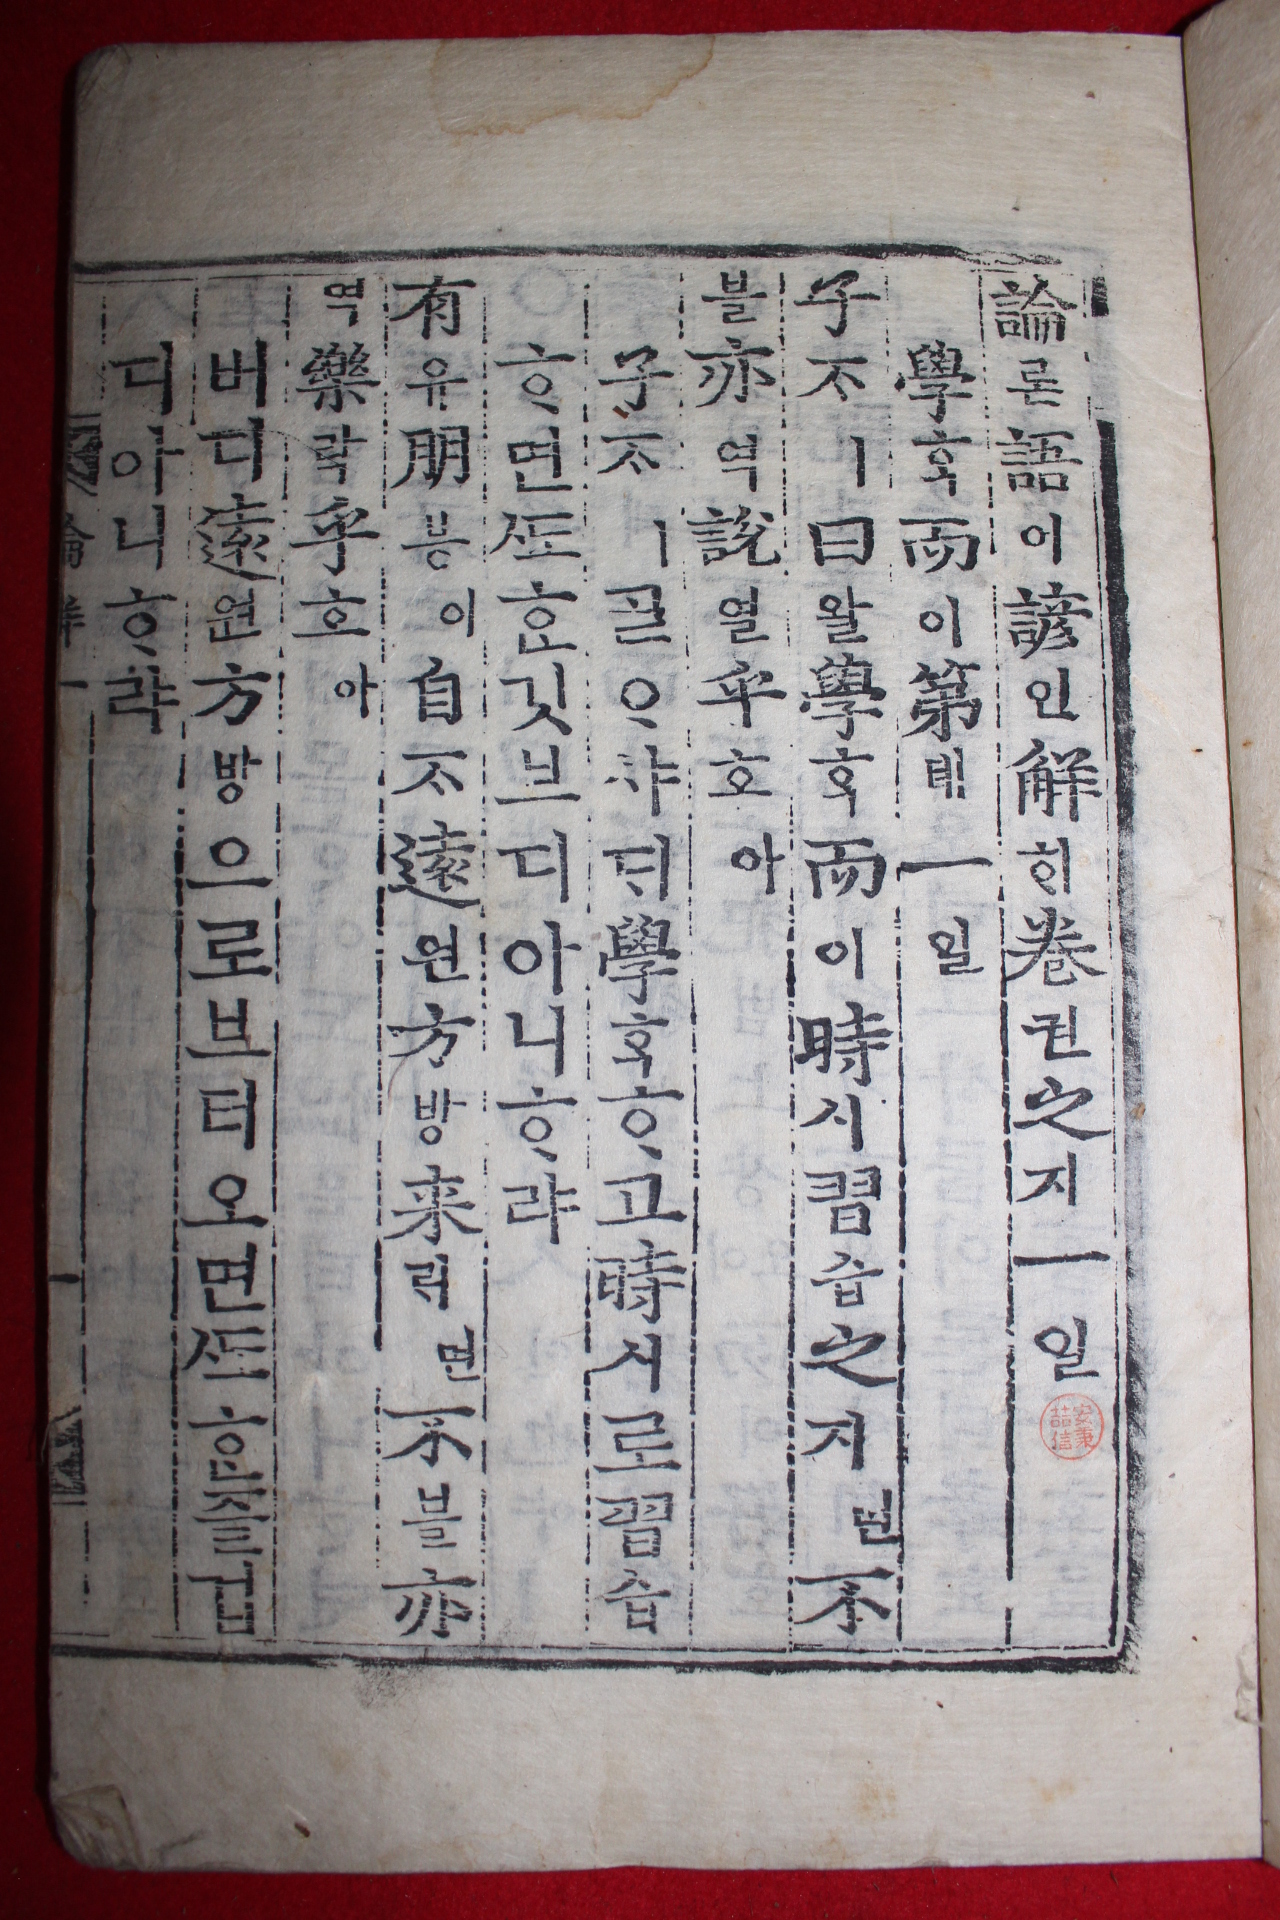 論론語어諺언解ᄒᆡ卷권之지一일
學ᄒᆞᆨ而이第뎨一일
子ᄌᆞㅣ曰왈學ᄒᆞᆨ而이時시習습之지면不
블亦역說열乎호아
子ᄌᆞㅣᄀᆞᆯᄋᆞ샤ᄃᆡ學ᄒᆞᆨᄒᆞ고時시로習습
ᄒᆞ면ᄯᅩᄒᆞᆫ깃브디아니ᄒᆞ랴
有유朋븡이自ᄌᆞ遠원方방来ᄅᆡ면不블亦
역樂락乎호아
버디遠원方방으로브터오면ᄯᅩᄒᆞᆫ즐겁
디아니ᄒᆞ랴